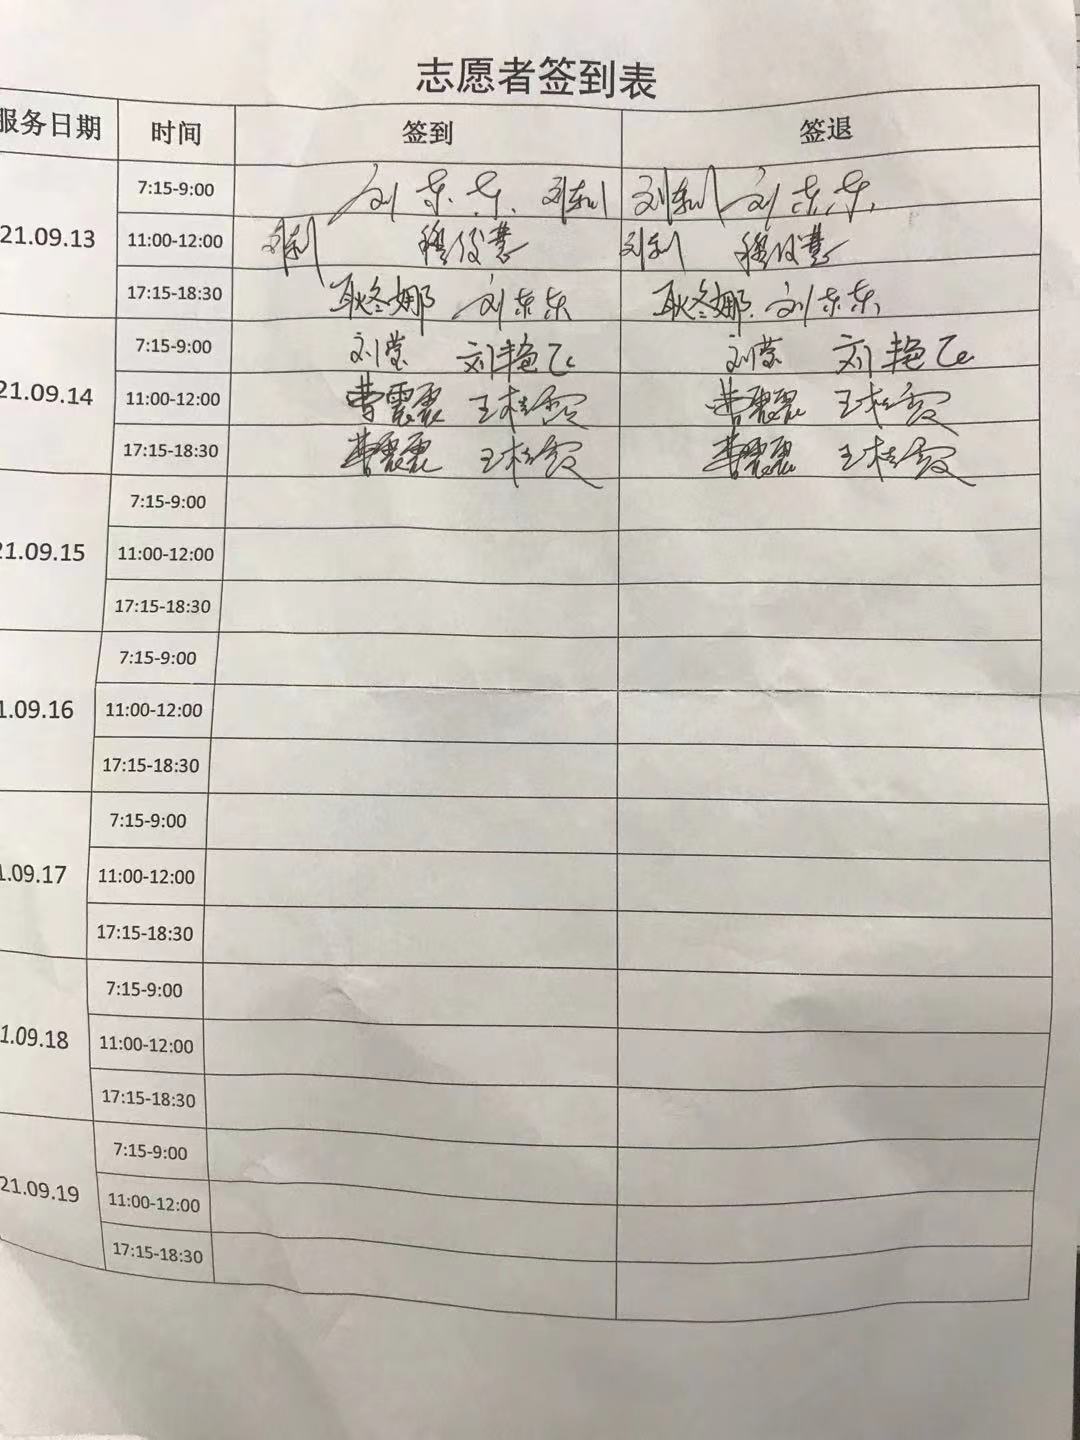 志愿者签到表
服务日期 时间 签到 签退
7:15-9:00 刘东东 刘东东
21.09.13 11:00-12:00
17:15-18:30 耿冬娜 刘东东 耿冬娜 刘东东
7:15-9:00 刘莹 刘艳飞 刘莹 刘艳飞
21.09.14 11:00-12:00 曹震震 王桂霞 曹震震 王桂霞
17:15-18:30 曹震震 王桂霞 曹震震 王桂霞
7:15-9:00
21.09.15 11:00-12:00
17:15-18:30
7:15-9:00
1.09.16 11:00-12:00
17:15-18:30
7:15-9:00
1.09.17 11:00-12:00
17:15-18:30
7:15-9:00
1.09.18 11:00-12:00
17:15-18:30
7:15-9:00
21.09.19 11:00-12:00
17:15-18:30